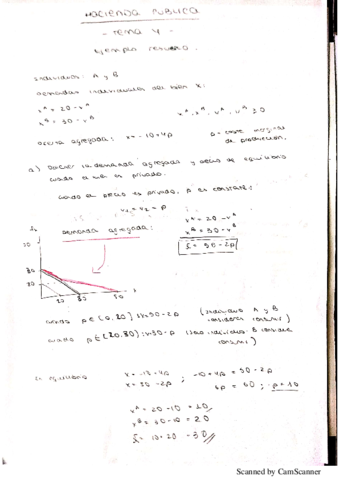 HACIENDA PUBLICA
- TEMA 4 -
Ejemplo resuelto.
Individuos: A y B
Demandas individuales del bien X:
x^A = 20 - v^A
x^B = 30 - v^B
x^A, x^B, v^A, v^B ≥ 0
oferta agregada: x = -10 + 4p
p = coste marginal de producción.
a) Deducir la demanda agregada y precio de equilibrio
cuando el bien es privado.
Cuando el precio es privado, p es constante:
v_A = v_B = p
Demanda agregada:
x^A = 20 - v^A
x^B = 30 - v^B
x = 50 - 2p
30
20
30
50
cuando p ∈ [0,20] : x = 50 - 2p (Individuo A y B
consumen)
cuando p ∈ [20,30] : x = 30 - p (solo individuo B consume)
Equilibrio
x = -10 + 4p
x = 50 - 2p
-10 + 4p = 50 - 2p
6p = 60 ; p = 10
x^A = 20 - 10 = 10
x^B = 30 - 10 = 20
x = 10 + 20 = 30
Scanned by CamScanner